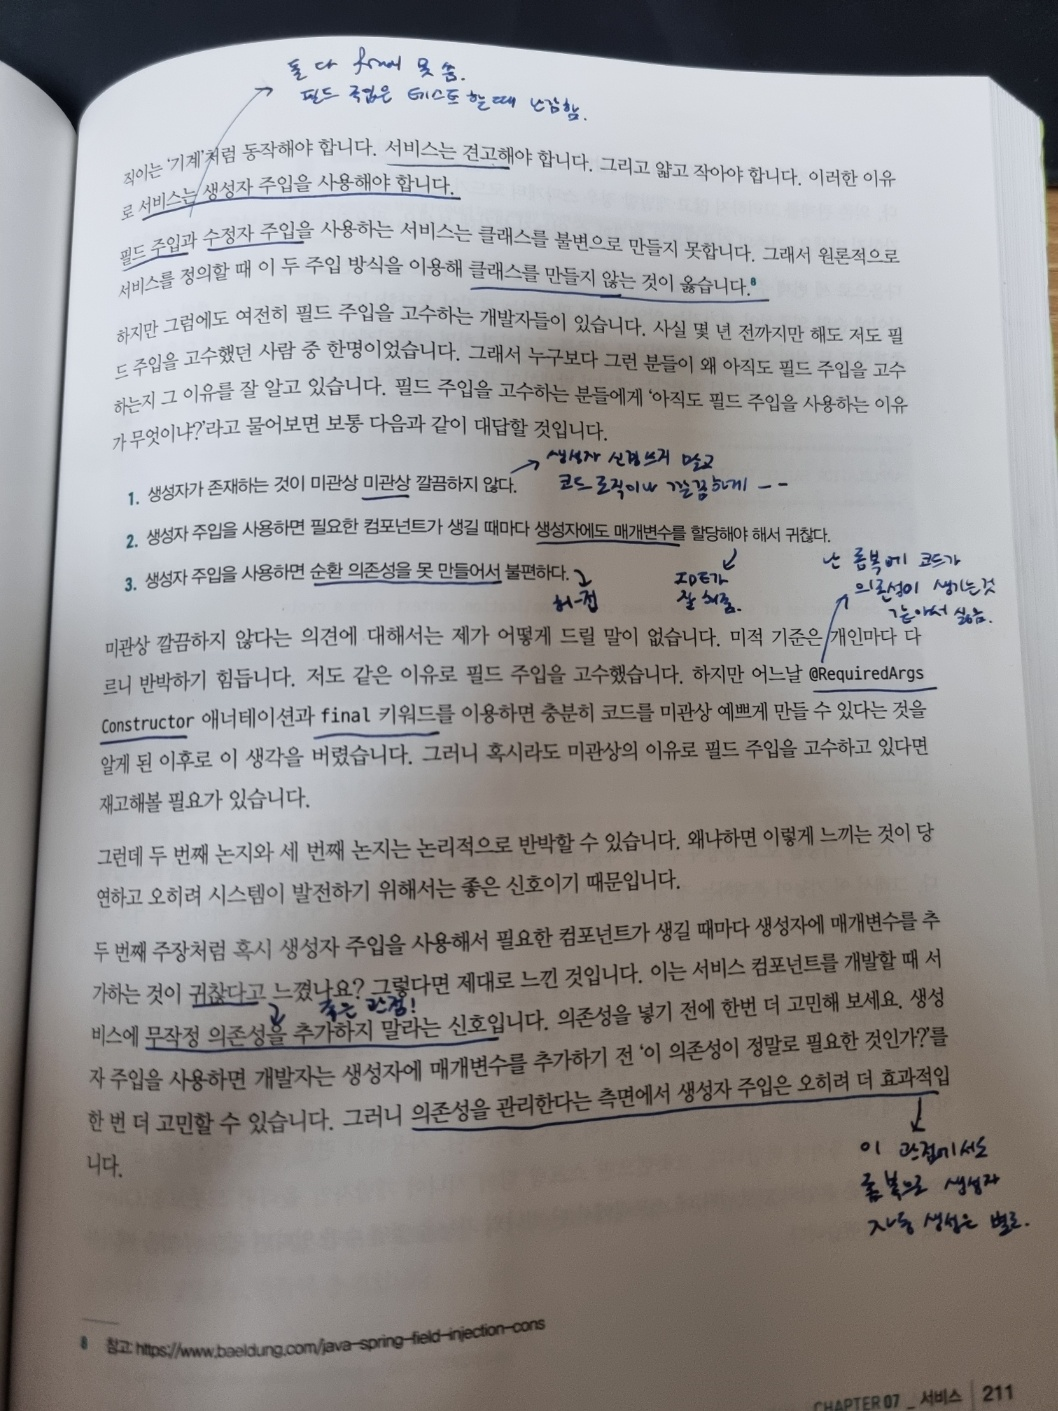 둘 다 final 못 씀.
필드 주입은 테스트 할 때 난감함.
직이는 '기계'처럼 동작해야 합니다. 서비스는 견고해야 합니다. 그리고 얇고 작아야 합니다. 이러한 이유
로 서비스는 생성자 주입을 사용해야 합니다.
필드 주입과 수정자 주입을 사용하는 서비스는 클래스를 불변으로 만들지 못합니다. 그래서 원론적으로
서비스를 정의할 때 이 두 주입 방식을 이용해 클래스를 만들지 않는 것이 옳습니다.8
하지만 그럼에도 여전히 필드 주입을 고수하는 개발자들이 있습니다. 사실 몇 년 전까지만 해도 저도 필
드 주입을 고수했던 사람 중 한명이었습니다. 그래서 누구보다 그런 분들이 왜 아직도 필드 주입을 고수
하는지 그 이유를 잘 알고 있습니다. 필드 주입을 고수하는 분들에게 '아직도 필드 주입을 사용하는 이유
가 무엇이냐?'라고 물어보면 보통 다음과 같이 대답할 것입니다.
생성자 신경쓰지 말고
코드 로직이나 깔끔하게 - -
1. 생성자가 존재하는 것이 미관상 미관상 깔끔하지 않다.
2. 생성자 주입을 사용하면 필요한 컴포넌트가 생길 때마다 생성자에도 매개변수를 할당해야 해서 귀찮다.
3. 생성자 주입을 사용하면 순환 의존성을 못 만들어서 불편하다.
허-접
IDE가
잘 해줌.
난 롬복에 코드가
의존성이 생기는것
같아서 싫음.
미관상 깔끔하지 않다는 의견에 대해서는 제가 어떻게 드릴 말이 없습니다. 미적 기준은 개인마다 다
르니 반박하기 힘듭니다. 저도 같은 이유로 필드 주입을 고수했습니다. 하지만 어느날 @RequiredArgs
Constructor 애너테이션과 final 키워드를 이용하면 충분히 코드를 미관상 예쁘게 만들 수 있다는 것을
알게 된 이후로 이 생각을 버렸습니다. 그러니 혹시라도 미관상의 이유로 필드 주입을 고수하고 있다면
재고해볼 필요가 있습니다.
그런데 두 번째 논지와 세 번째 논지는 논리적으로 반박할 수 있습니다. 왜냐하면 이렇게 느끼는 것이 당
연하고 오히려 시스템이 발전하기 위해서는 좋은 신호이기 때문입니다.
두 번째 주장처럼 혹시 생성자 주입을 사용해서 필요한 컴포넌트가 생길 때마다 생성자에 매개변수를 추
가하는 것이 귀찮다고 느꼈나요? 그렇다면 제대로 느낀 것입니다. 이는 서비스 컴포넌트를 개발할 때 서
좋은 관점!
비스에 무작정 의존성을 추가하지 말라는 신호입니다. 의존성을 넣기 전에 한번 더 고민해 보세요. 생성
자 주입을 사용하면 개발자는 생성자에 매개변수를 추가하기 전 '이 의존성이 정말로 필요한 것인가?'를
한 번 더 고민할 수 있습니다. 그러니 의존성을 관리한다는 측면에서 생성자 주입은 오히려 더 효과적입
니다.
이 관점에서도
롬복으로 생성자
자동 생성은 별로.
8 참고: https://www.baeldung.com/java-spring-field-injection-cons
CHAPTER 07 _ 서비스 | 211